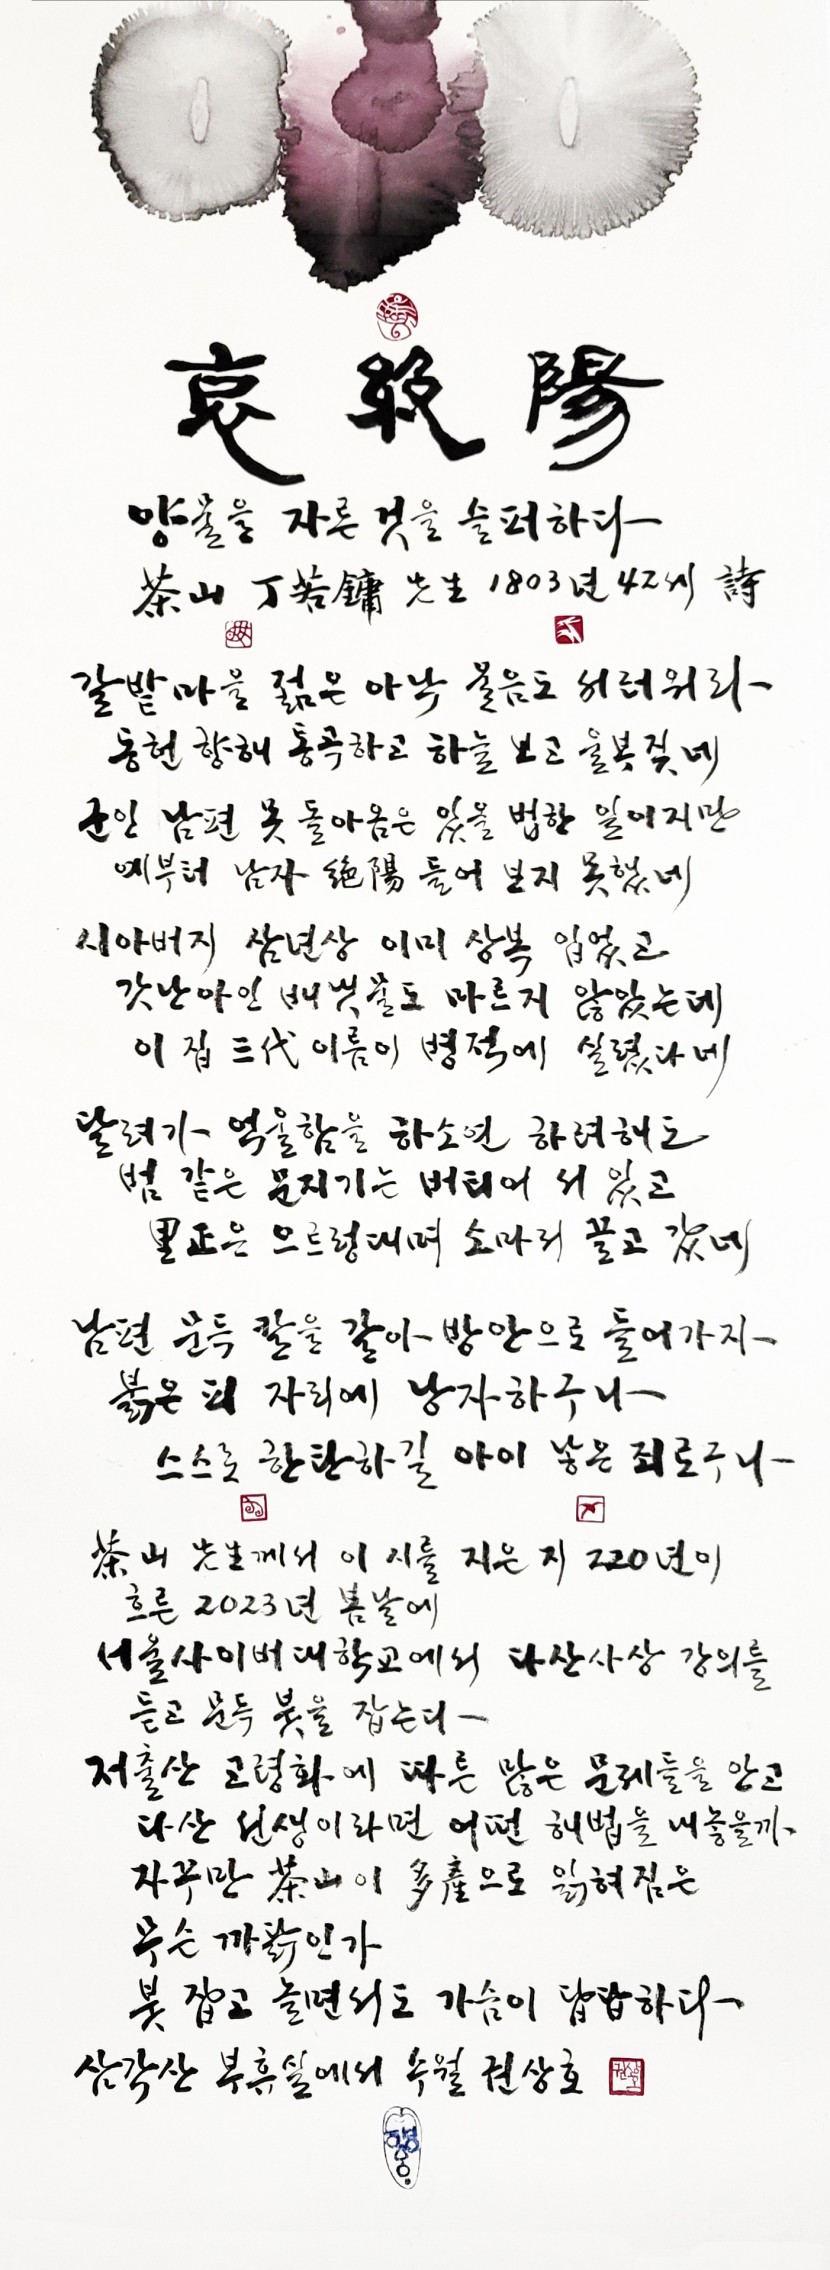 哀絶陽
양물을 자른 것을 슬퍼하다
茶山 丁若鏞 先生 1803년 42세 詩
갈밭마을 젊은 아낙 울음도 서러워라
동헌 향해 통곡하고 하늘 보고 울부짖네
군인 남편 못 돌아옴은 있을 법한 일이지만
예부터 남자 絶陽 들어 보지 못했네
시아버지 삼년상 이미 상복 입었고
갓난아인 배냇물도 마르지 않았는데
이 집 三代 이름이 병적에 실렸다네
달려가 억울함을 하소연 하려해도
범 같은 문지기는 버티어 서 있고
里正은 으르렁대며 소마저 끌고 갔네
남편 문득 칼을 갈아 방안으로 들어가자
붉은 피 자리에 낭자하구나
스스로 한탄하길 아이 낳은 죄로구나
茶山 先生께서 이 시를 지은 지 220년이
흐른 2023년 봄날에
서울사이버대학교에서 다산사상 강의를
듣고 문득 붓을 잡는다
저출산 고령화에 따른 많은 문제들을 안고
다산 선생이라면 어떤 해법을 내놓을까
자꾸만 茶山이 多産으로 읽혀짐은
무슨 까닭인가
붓 잡고 놀면서도 가슴이 답답하다
삼각산 부휴실에서 수월 권상호